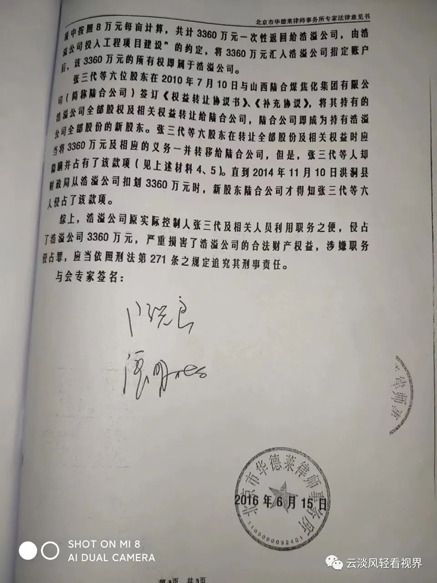 北京市华德莱律师事务所专家法律意见书
项中按照8万元每亩计算，共计3360万元一次性返回给浩溢公司，由浩
溢公司投入工程项目建设”的约定，将3360万元汇入浩溢公司指定账户
后，该3360万元的所有权即属于浩溢公司。
张三代等六位股东在2010年7月10日与山西陆合煤焦化集团有限公
司（简称陆合公司）签订《权益转让协议书》、《补充协议》，将其持有的
浩溢公司全部股权及相关权益转让给陆合公司，陆合公司即成为持有浩溢
公司全部股份的新股东。张三代等六股东在转让全部股份及相关权益时应
当将3360万元及相应的义务一并转移给陆合公司，但是，张三代等人却
隐瞒并占有了该款项（见上述材料4、5）。直到2014年11月10日洪洞县
财政局从浩溢公司扣划3360万元时，新股东陆合公司才得知张三代等六
人侵占了该款项。
综上，浩溢公司原实际控制人张三代及相关人员利用职务之便，侵占
了浩溢公司3360万元，严重损害了浩溢公司的合法财产权益，涉嫌职务
侵占罪，应当依照刑法第271条之规定追究其刑事责任。
与会专家签名：
北京市华德莱律师事务所
2016年6月15日
SHOT ON MI 8
AI DUAL CAMERA
云淡风轻看视界